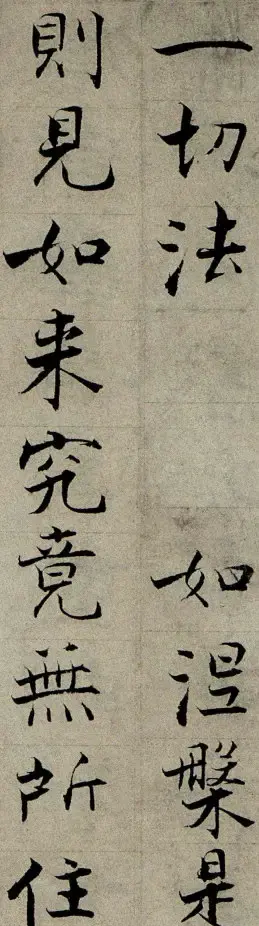 一切法 如涅槃是
則見如来究竟無所住